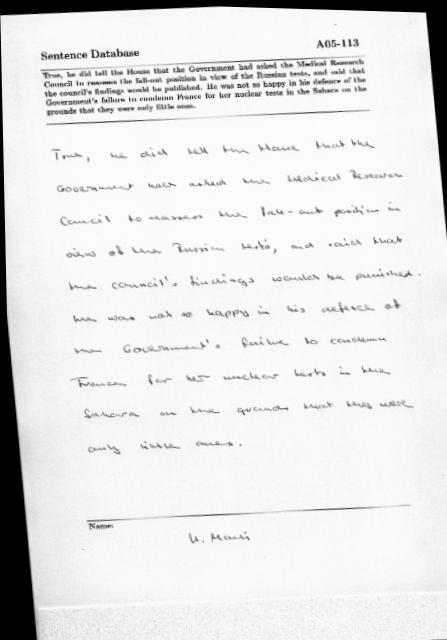 Sentence Database
A05-113
True, he did tell the House that the Government had asked the Medical Research
Council to reassess the fall-out position in view of the Russian tests, and said that
the council's findings would be published. He was not so happy in his defence of the
Government's failure to condemn France for her nuclear tests in the Sahara on the
grounds that they were only little ones.
True, he did tell the House that the
Government had asked the Medical Research
Council to reassess the fall-out position in
view of the Russian tests, and said that
the council's findings would be punished.
He was not so happy in his defence of
the Government's failure to condemn
France for her nuclear tests in the
Sahara on the grounds that they were
only little ones.
Name: